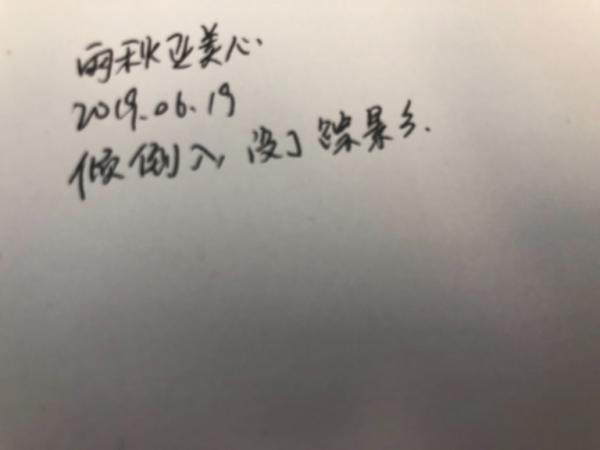 雨秋亚美心.
2019.06.19
倾倒入, 没了踪景乡.